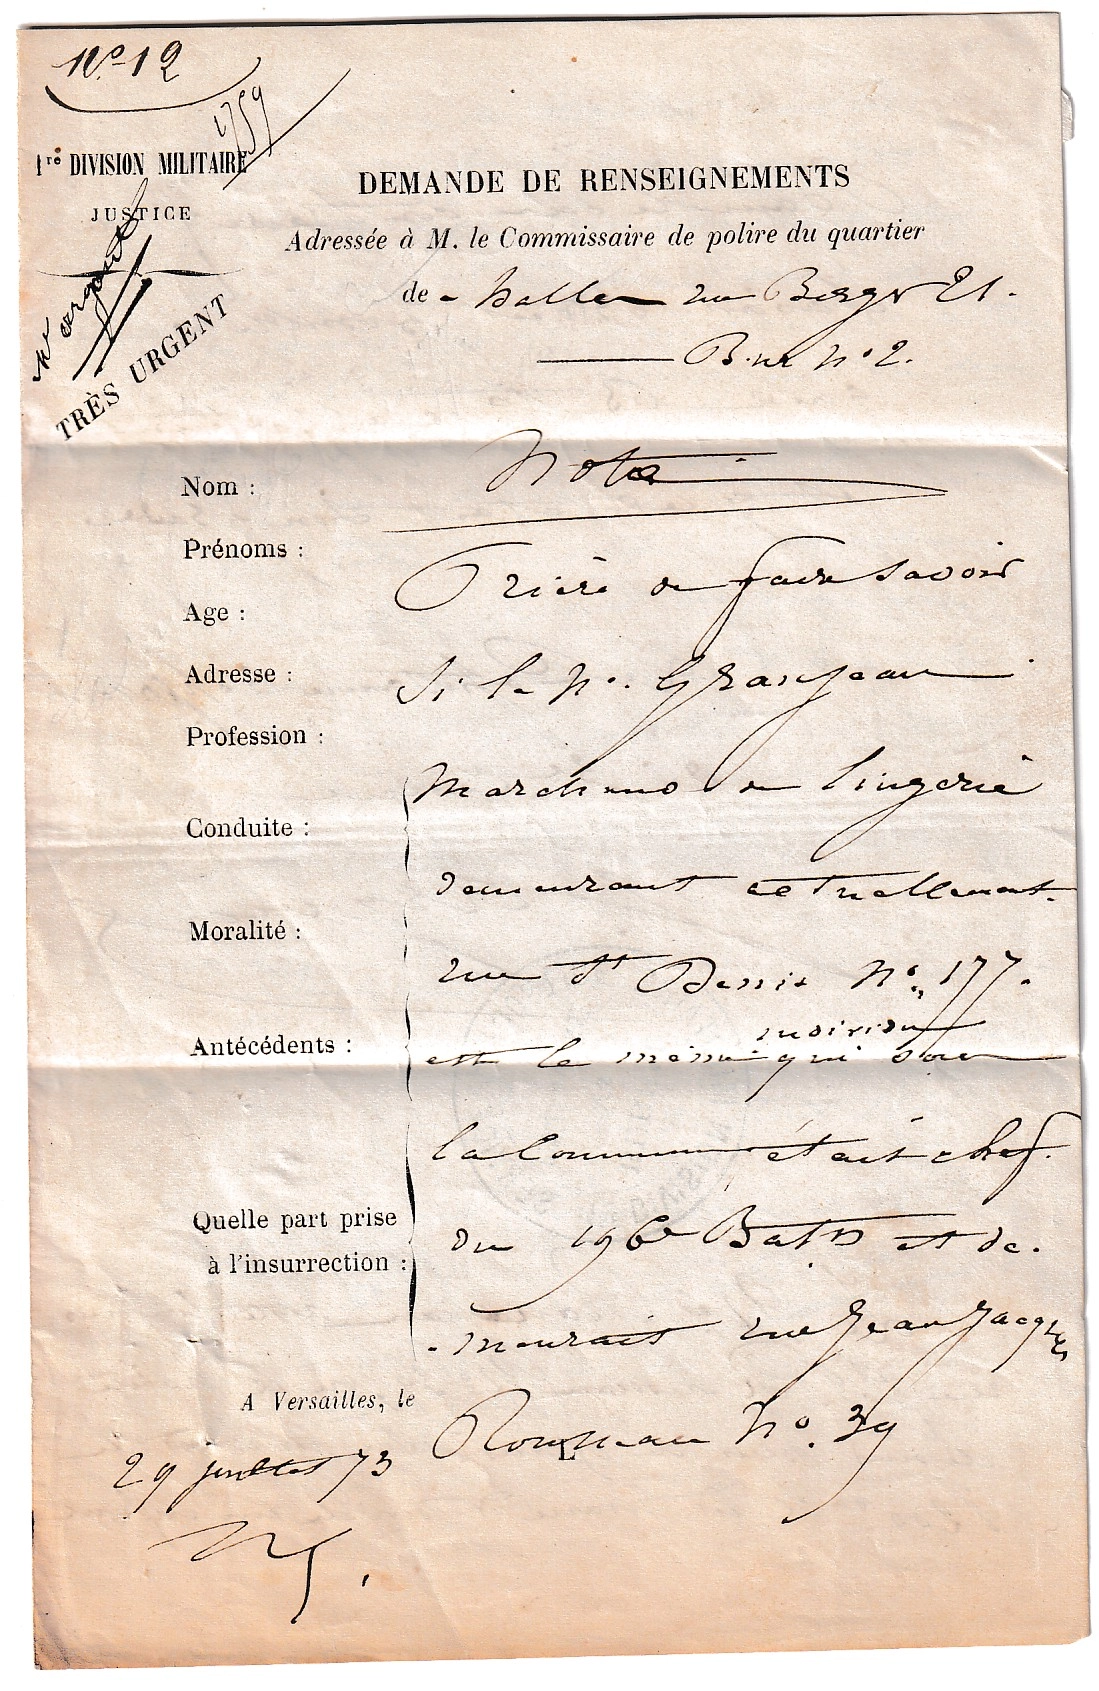 No 12
1759
1re DIVISION MILITAIRE
JUSTICE
urgent
TRÈS URGENT
DEMANDE DE RENSEIGNEMENTS
Adressée à M. le Commissaire de polire du quartier
de - halles rue Berger 21.
B. No 2.
Nom :
Prénoms :
Age :
Adresse :
Profession :
Conduite :
Moralité :
Antécédents :
Quelle part prise
à l'insurrection :
Nota
Prière de faire savoir
Si le N. Granjean
Marchand de lingerie
demeurant actuellement
rue St Denis No 177.
est le même individu qui sous
la Commune était chef
du 196e Batn et de-
-meurait rue Jean Jacques
Rousseau No. 39
A Versailles, le
29 juillet 73